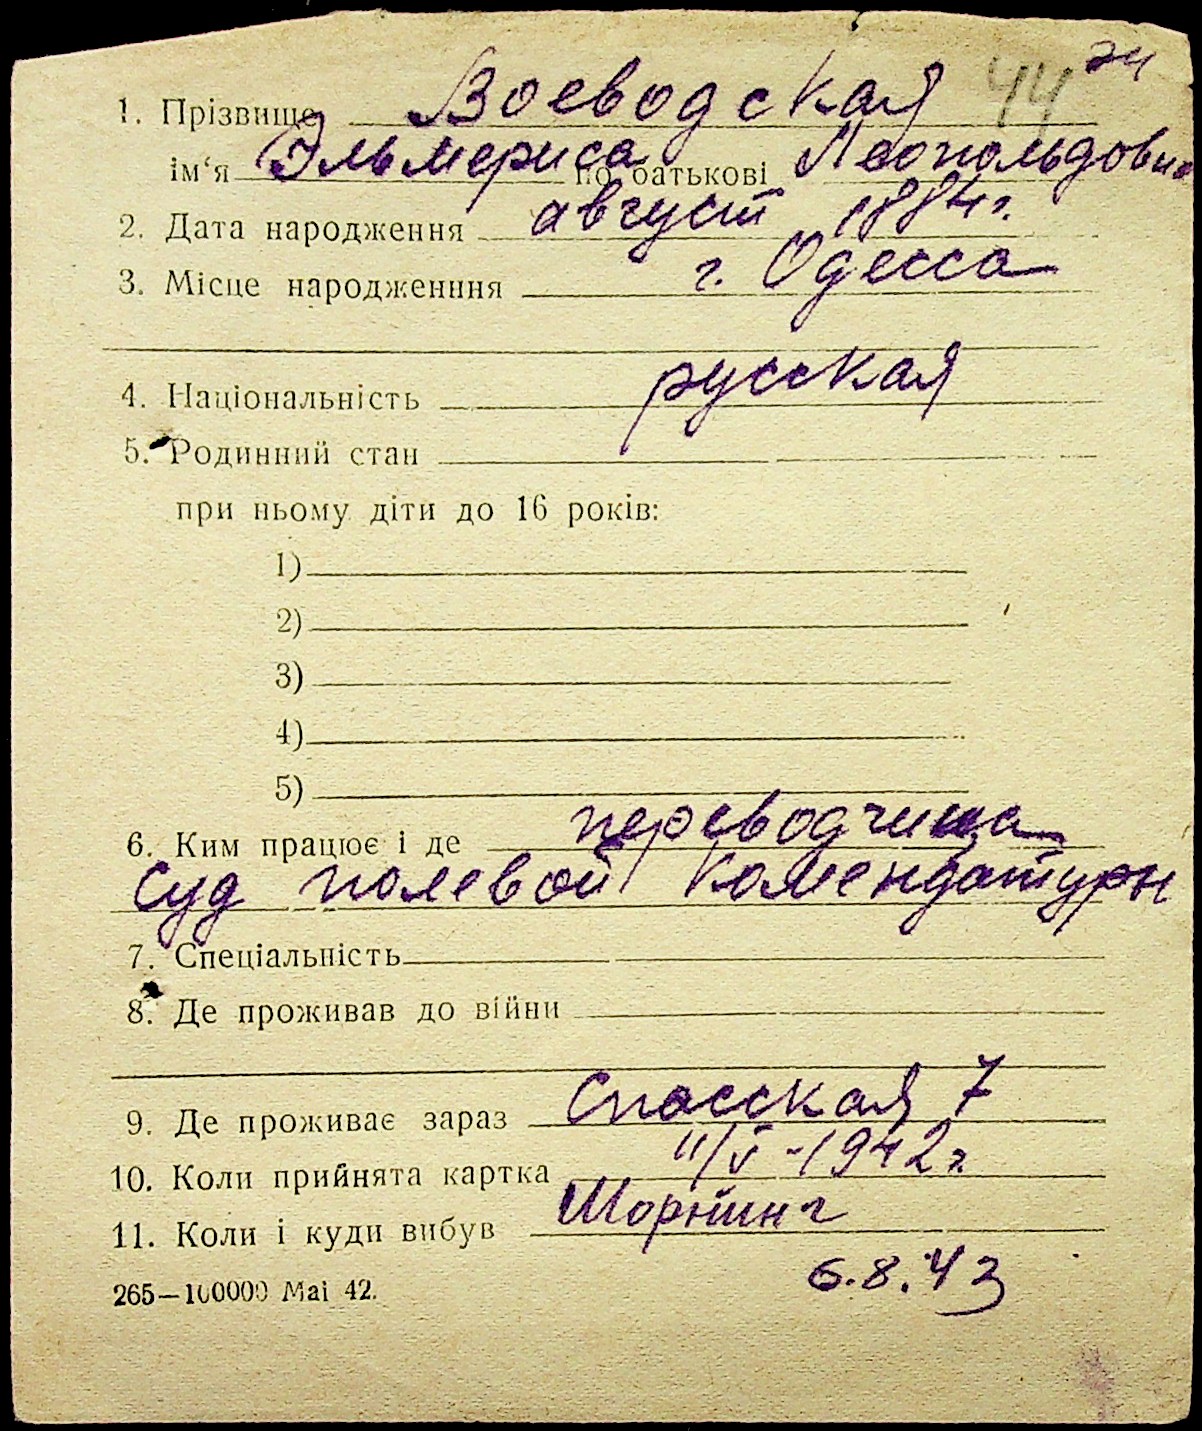 44 74
1. Прізвище Воеводская
ім‘я Эльмериса по батькові Леопольдовна
2. Дата народження август 1884 г.
3. Місце народженння г. Одесса
4. Національність русская
5. Родинний стан
при ньому діти до 16 років:
1)
2)
3)
4)
5)
6. Ким працює і де переводчица
суд полевой комендатуры
7. Спеціальність
8. Де проживав до війни
9. Де проживає зараз Спасская 7
10. Коли прийнята картка 11/V-1942 г
11. Коли і куди вибув
6.8.43
265—100000 Mai 42.